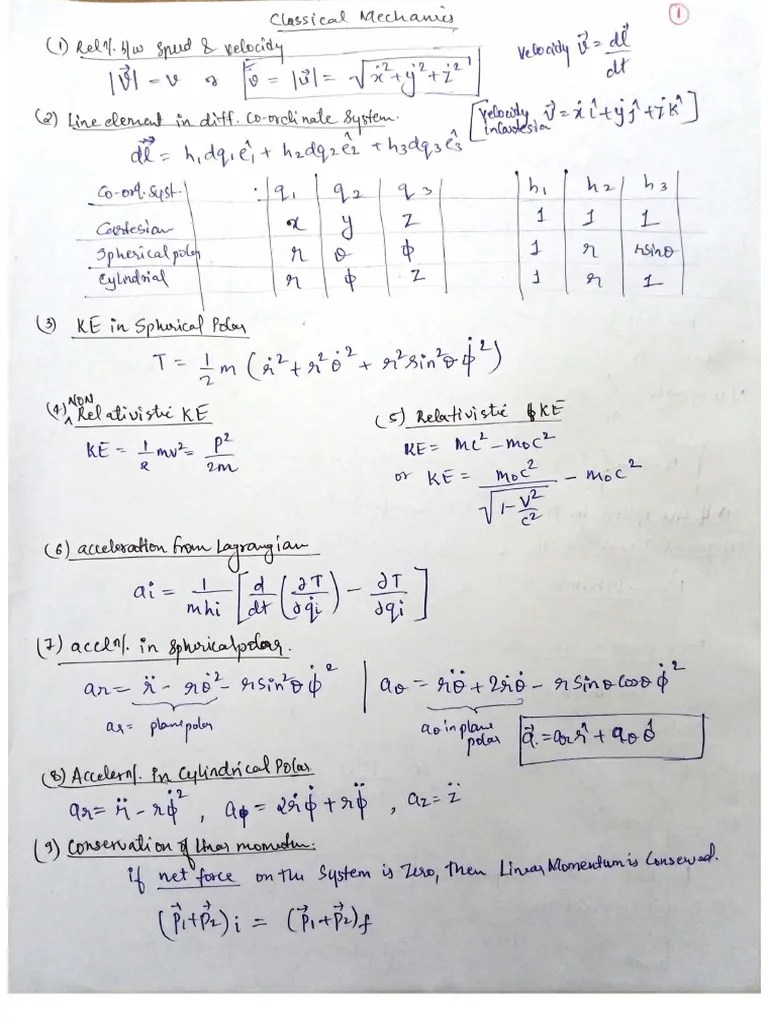 Classical Mechanics
1
(1) Reln. b/w speed & velocity
velocity v⃗ = dl⃗/dt
|v⃗| = v or v = |v⃗| = √(ẋ² + ẏ² + ż²)
(2) Line element in diff. Co-ordinate System.
[velocity in Cartesian v⃗ = ẋ î + ẏ ĵ + ż k̂]
dl⃗ = h₁dq₁ê₁ + h₂dq₂ê₂ + h₃dq₃ê₃
Co-ord. Syst. : q₁ | q₂ | q₃ | h₁ | h₂ | h₃
Cartesian x | y | z | 1 | 1 | 1
Spherical polar r | θ | ϕ | 1 | r | r sinθ
Cylindrial r | ϕ | z | 1 | r | 1
(3) KE in Spherical Polar
T = 1/2 m (ṙ² + r²θ̇² + r²sin²θ ϕ̇²)
(4) NON Relativistic KE
KE = 1/2 mv² = p²/2m
(5) Relativistic KE
KE = mc² – m₀c²
or KE = m₀c²/√(1 – v²/c²) – m₀c²
(6) acceleration from Lagrangian
ai = 1/mhi [d/dt (∂T/∂q̇i) – ∂T/∂qi]
(7) acceln. in Spherical polar.
ar = r̈ – rθ̇² – r sin²θ ϕ̇² | aθ = rθ̈ + 2ṙθ̇ – r sinθ cosθ ϕ̇²
ar = plane polar
aθ in plane polar
a⃗ = ar r̂ + aθ θ̂
(8) Accelern. in Cylindrical Polar
ar = r̈ – rϕ̇² , aϕ = 2ṙϕ̇ + rϕ̈ , az = z̈
(9) Conservation of linear momentum:
if net force on the System is zero, then Linear Momentum is Conserved.
(p⃗₁ + p⃗₂)i = (p⃗₁ + p⃗₂)f